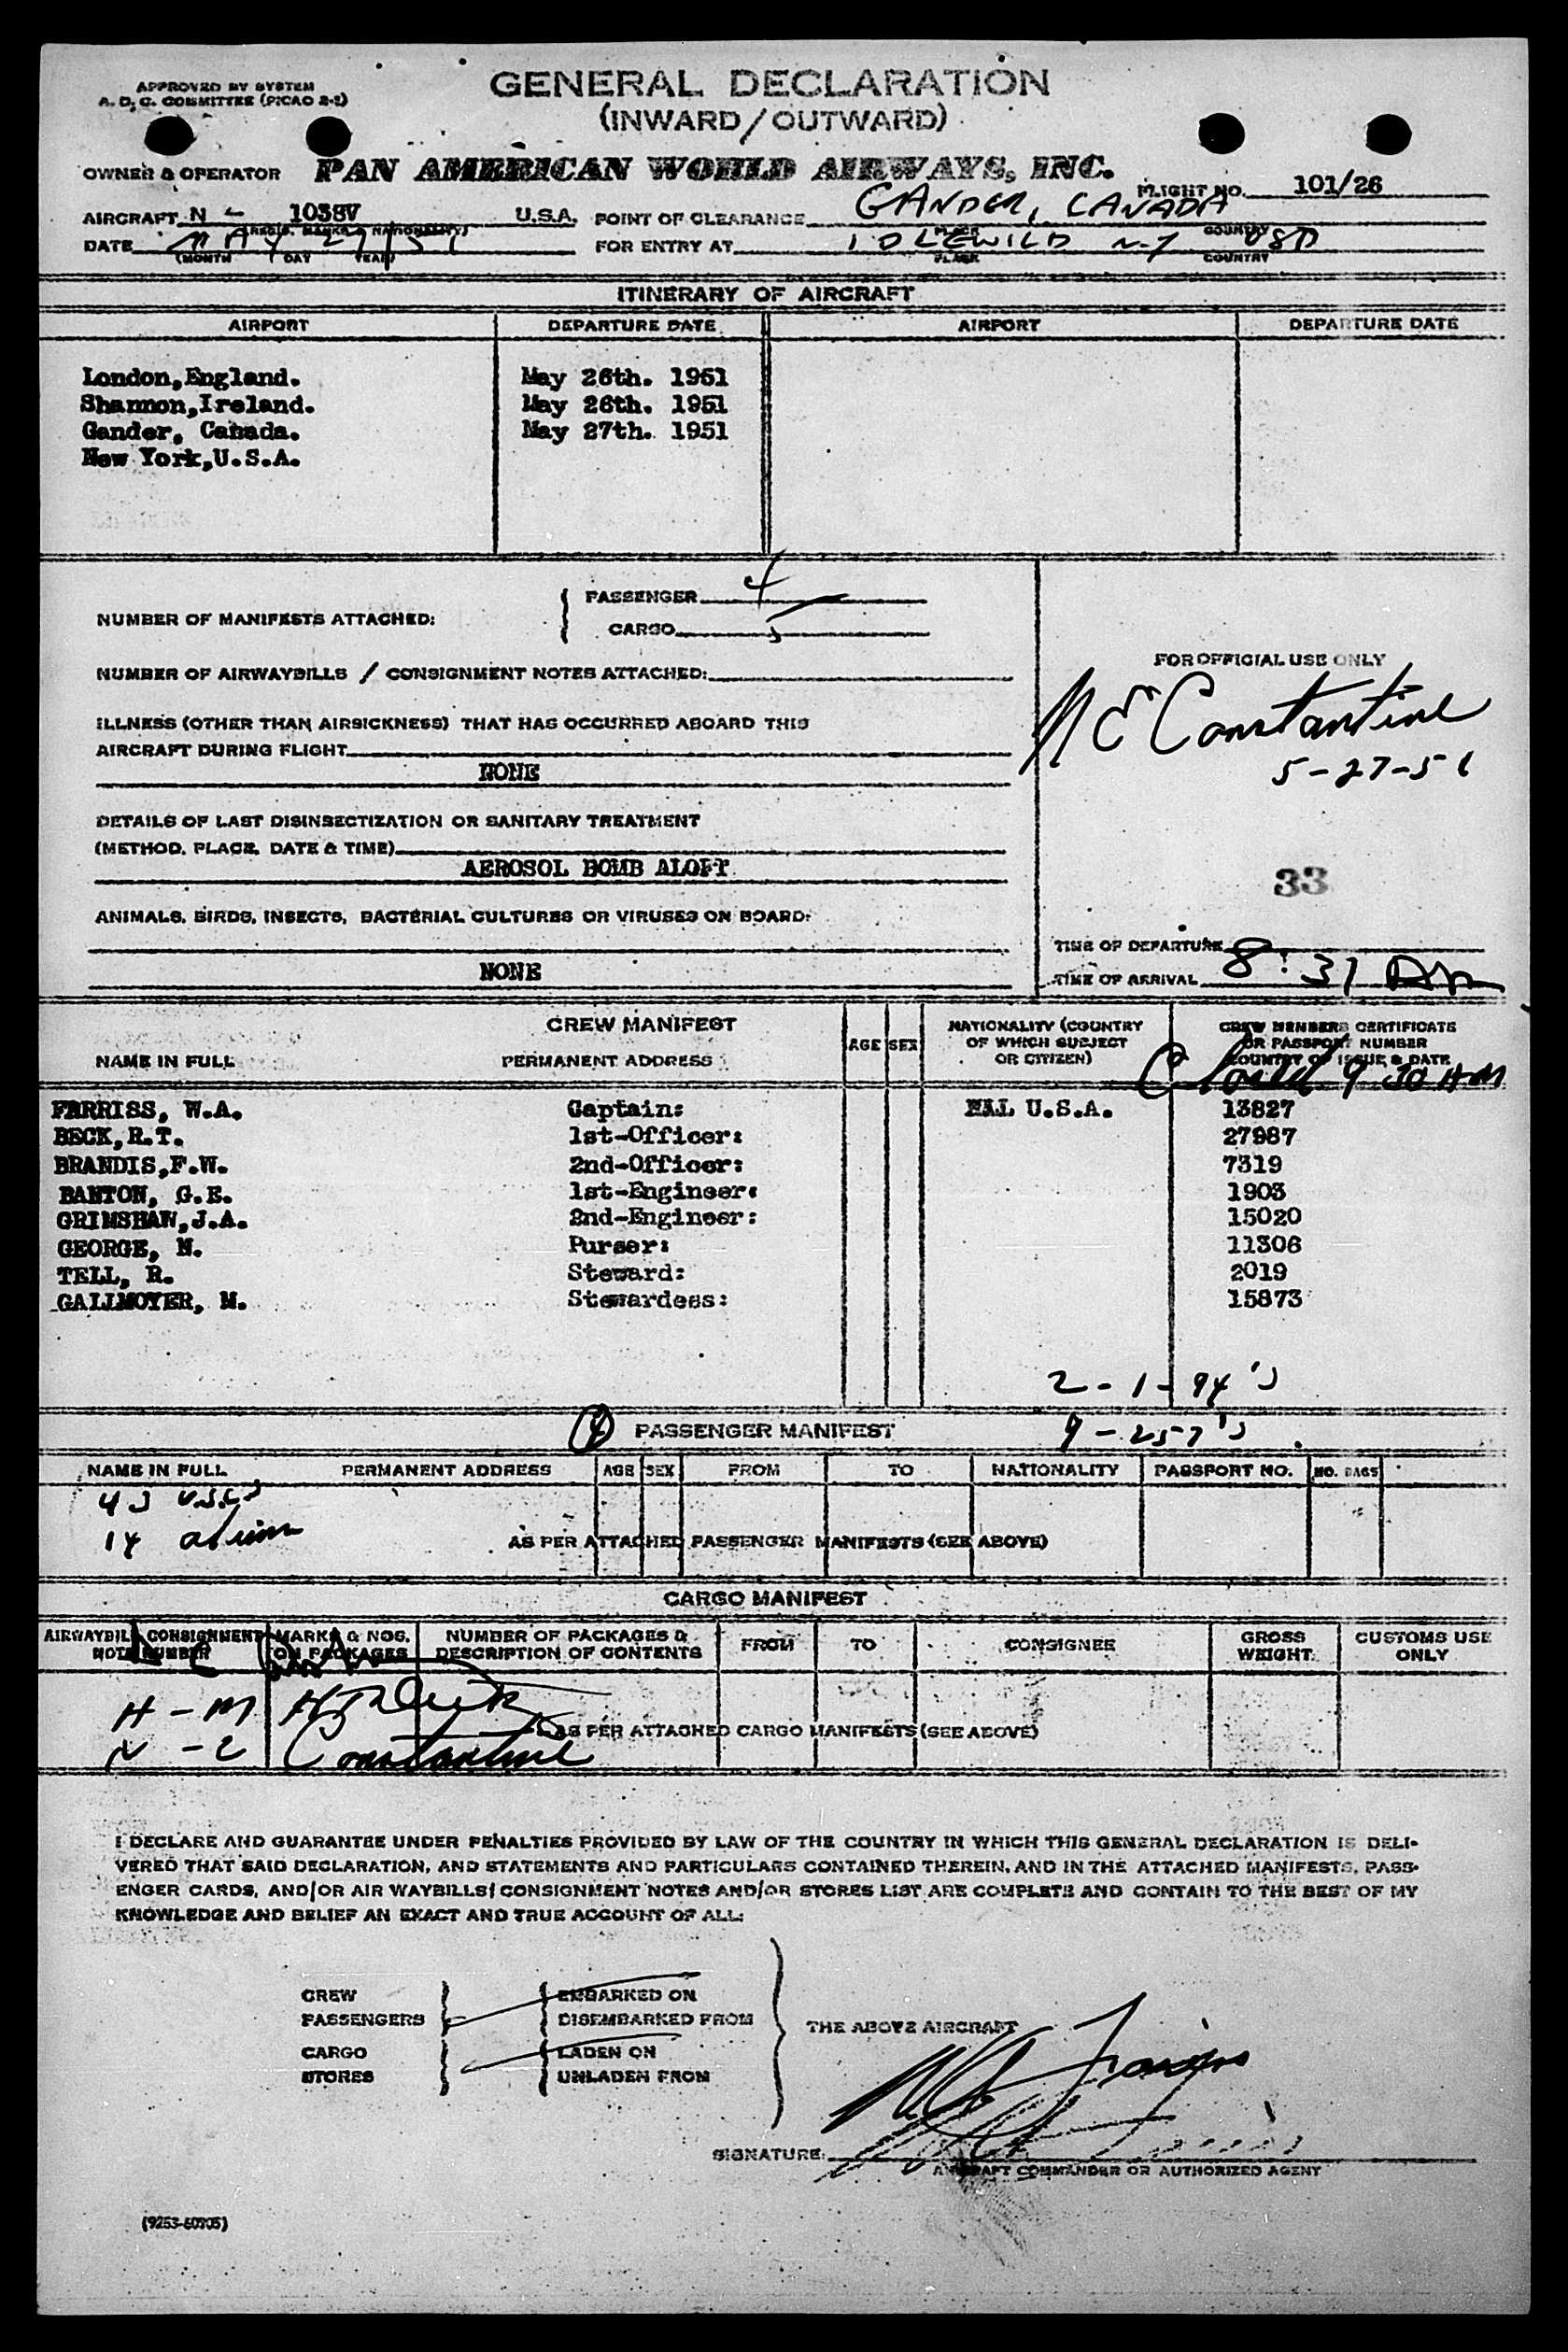 APPROVED BY SYSTEM
A. D. C. COMMITTEE (PICAO 2-1)
GENERAL DECLARATION
(INWARD/OUTWARD)
OWNER & OPERATOR PAN AMERICAN WORLD AIRWAYS, INC.
FLIGHT NO. 101/26
AIRCRAFT N - 1038V U.S.A. POINT OF CLEARANCE GANDER, CANADA
(REGIS. MARKS & NATIONALITY) PLACE COUNTRY
DATE MAY 27 / 51 FOR ENTRY AT IDLEWILD N.Y USA
(MONTH DAY YEAR) PLACE COUNTRY
ITINERARY OF AIRCRAFT
AIRPORT DEPARTURE DATE AIRPORT DEPARTURE DATE
London,England. May 26th. 1951
Shannon,Ireland. May 26th. 1951
Gander, Canada. May 27th. 1951
New York,U.S.A.
NUMBER OF MANIFESTS ATTACHED:
PASSENGER 4
CARGO
NUMBER OF AIRWAYBILLS / CONSIGNMENT NOTES ATTACHED:
ILLNESS (OTHER THAN AIRSICKNESS) THAT HAS OCCURRED ABOARD THIS
AIRCRAFT DURING FLIGHT
NONE
DETAILS OF LAST DISINSECTIZATION OR SANITARY TREATMENT
(METHOD, PLACE, DATE & TIME)
AEROSOL BOMB ALOFT
ANIMALS, BIRDS, INSECTS, BACTERIAL CULTURES OR VIRUSES ON BOARD:
NONE
FOR OFFICIAL USE ONLY
N E Constantine
5-27-51
33
TIME OF DEPARTURE
TIME OF ARRIVAL 8:31 AM
CREW MANIFEST
NAME IN FULL PERMANENT ADDRESS AGE SEX NATIONALITY (COUNTRY OF WHICH SUBJECT OR CITIZEN) CREW MEMBERS CERTIFICATE OR PASSPORT NUMBER COUNTRY OF ISSUE & DATE
9 30 AM
FARRISS, W.A. Captain: U.S.A. 13827
BECK,R.T. 1st-Officer: 27987
BRANDIS,F.W. 2nd-Officer: 7319
BANTON, G.E. 1st-Engineer: 1903
GRIMSHAW,J.A. 2nd-Engineer: 15020
GEORGE, N. Purser: 11306
TELL, R. Steward: 2019
GALLMOYER, M. Stewardess: 15873
2-1-94's
4 PASSENGER MANIFEST 9-257's
NAME IN FULL PERMANENT ADDRESS AGE SEX FROM TO NATIONALITY PASSPORT NO. NO. BAGS
14
AS PER ATTACHED PASSENGER MANIFESTS (SEE ABOVE)
CARGO MANIFEST
AIRWAYBILL CONSIGNMENT NOTE NUMBER MARKS & NOS. ON PACKAGES NUMBER OF PACKAGES & DESCRIPTION OF CONTENTS FROM TO CONSIGNEE GROSS WEIGHT CUSTOMS USE ONLY
H - M
AS PER ATTACHED CARGO MANIFESTS (SEE ABOVE)
Constantine
I DECLARE AND GUARANTEE UNDER PENALTIES PROVIDED BY LAW OF THE COUNTRY IN WHICH THIS GENERAL DECLARATION IS DELI-
VERED THAT SAID DECLARATION, AND STATEMENTS AND PARTICULARS CONTAINED THEREIN, AND IN THE ATTACHED MANIFESTS, PASS-
ENGER CARDS, AND/OR AIR WAYBILLS/ CONSIGNMENT NOTES AND/OR STORES LIST ARE COMPLETE AND CONTAIN TO THE BEST OF MY
KNOWLEDGE AND BELIEF AN EXACT AND TRUE ACCOUNT OF ALL:
CREW EMBARKED ON
PASSENGERS DISEMBARKED FROM
THE ABOVE AIRCRAFT
CARGO LADEN ON
STORES UNLADEN FROM
SIGNATURE:
AIRCRAFT COMMANDER OR AUTHORIZED AGENT
(9253-60305)